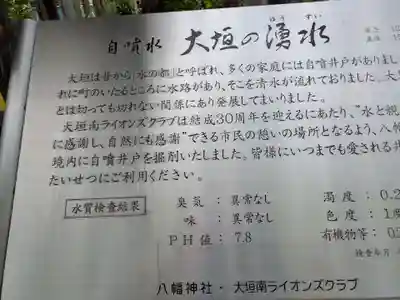 ゆう すい
自噴水 大垣の湧水
大垣は昔から「水の都」と呼ばれ、多くの家庭には自噴井戸がありまし
れに町のいたるところに水路があり、そこを清水が流れておりました。大
とは切っても切れない関係にあり発展してまいりました。
大垣南ライオンズクラブは結成30周年を迎えるにあたり、“水と親
に感謝し、自然にも感謝”できる市民の憩いの場所となるよう、八幡
境内に自噴井戸を掘削いたしました。皆様にいつまでも愛される井
たいせつにご利用ください。
水質検査結果
臭気：異常なし 濁度：0.2
味：異常なし 色度：1度
PH値：7.8 有機物等：0.
検査年月
八幡神社・大垣南ライオンズクラブ